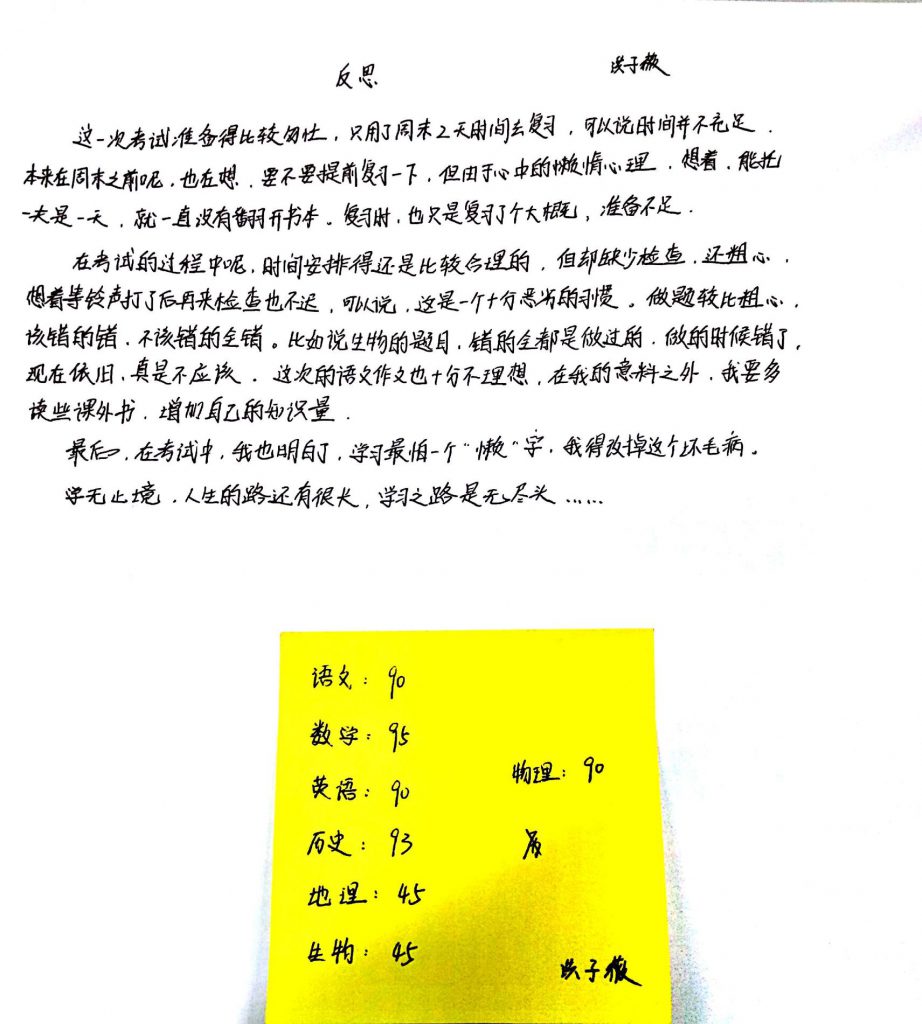 反思
洪子薇
这一次考试准备得比较匆忙，只用了周末2天时间去复习，可以说时间并不充足．
本来在周末之前呢，也在想，要不要提前复习一下，但由于心中的懒惰心理，想着，能拖
一天是一天，就一直没有翻开书本。复习时，也只是复习了个大概，准备不足．
在考试的过程中呢，时间安排得还是比较合理的，但却缺少检查，还粗心，
想着等铃声打了后再来检查也不迟，可以说，这是一个十分恶劣的习惯。做题较比粗心，
该错的错，不该错的全错。比如说生物的题目，错的全都是做过的，做的时候错了，
现在依旧，真是不应该．这次的语文作文也十分不理想，在我的意料之外，我要多
读些课外书，增加自己的知识量．
最后，在考试中，我也明白了，学习最怕一个"懒"字，我得改掉这个坏毛病。
学无止境，人生的路还有很长，学习之路是无尽头……
语文：90
数学：95
英语：90
物理：90
历史：93
地理：45
生物：45
洪子薇